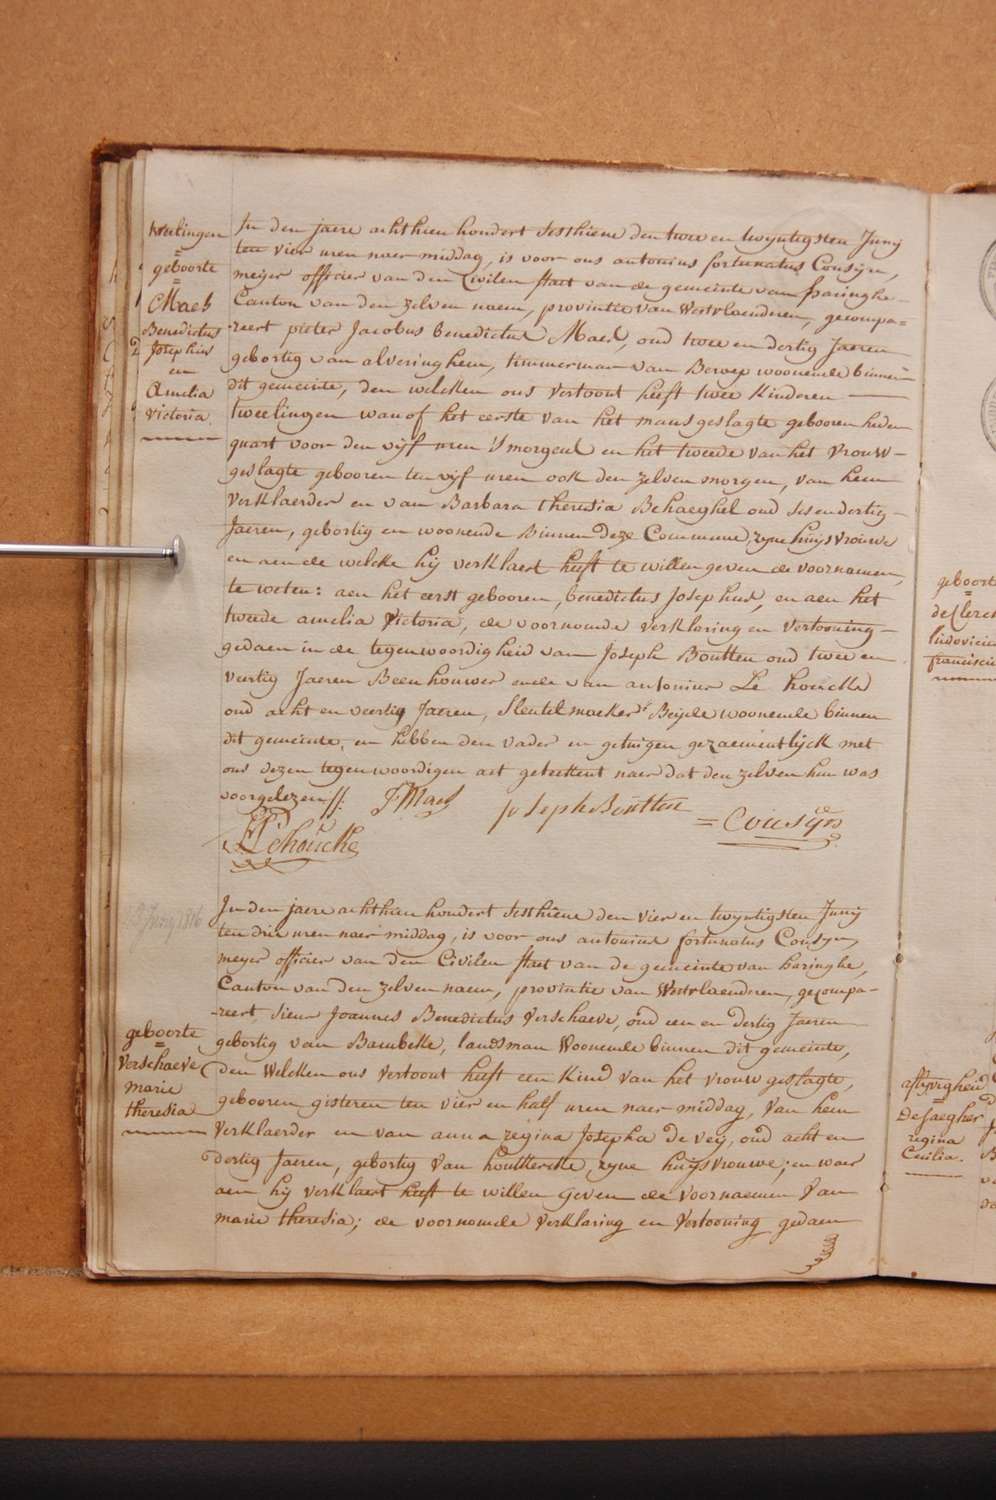 tweelingen
=
geboorte
=
Maes
Benedictus
Josephus
en
Amelia
victoria.
In den jaere achthien hondert Sesthiene den twee en twyntigsten Junij
ten vier uren naer middag, is voor ons antonius fortunatus Cousijn,
meijer officier van den Civilen staet van de gemeinte van haringhe
Canton van den zelven naem, provintie van Westvlaenderen, gecompa=
reert pieter Jacobus benedictus Maes, oud twee en dertig Jaeren
gebortig van alveringhem, timmerman van Beroep woonende binnen
dit gemeinte, den welcken ons vertoont heeft twee kinderen
tweelingen wanof het eerste van het mansgeslagte gebooren heden
quart voor den vijf uren 's morgens en het tweede van het vrouw-
geslagte gebooren ten vijf uren ook den zelven morgen, van hem
verklaerder en van Barbara theresia Behaeghel oud ses en dertig
Jaeren, gebortig en woonende Binnen deze Commune zyne huijsvrouwe
en aen de welcke hij verklaert heeft te willen geven de voornamen,
te weten: aen het eerst gebooren, benedictus Josephus, en aen het
tweede amelia Victoria, de voornoemde verklaring en vertooning
gedaen in de tegenwoordigheid van Joseph Boutten oud twee en
veertig Jaeren Beenhouwer ende van antonius Le houcke
oud acht en veertig Jaeren, Sleutelmaeker Beyde woonende binnen
dit gemeinte, en hebben den vader en getuigen gezaementlijck met
ons dezen tegenwoordigen act geteekent naer dat den zelven hun was
voorgelezen //. PMaes Joseph Boutten = Cousijn
Lehoucke
Junij 1816
geboorte
=
Verschaeve
marie
theresia
In den jaere achthien hondert Sesthiene den vier en twyntigsten Junij
ten drie uren naer middag, is voor ons antonius fortunatus Cousyn,
meyer officier van den Civilen staet van de gemeinte van haringhe,
Canton van den zelven naem, provintie van Westvlaenderen, gecompa-
-reert Sieur Joannes Benedictus Verschaeve, oud een en dertig Jaeren
gebortig van Bambeke, landsman Woonende binnen dit gemeinte,
den Welcken ons vertoont heeft een kind van het vrouwgeslagte,
gebooren gisteren ten vier en half uren naer middag, van hem
verklaerder en van anna regina Josepha de vey, oud acht en
dertig Jaeren, gebortig van houtkercke, zyne huijsvrouwe; en waer
aen hij verklaert heeft te willen Geven de voornaemen van
marie theresia; de voornoemde verklaring en Vertooning gedaen
geboorte
=
de Clerck
ludovicus
franciscus
De Jaegher
regina
Cecilia.